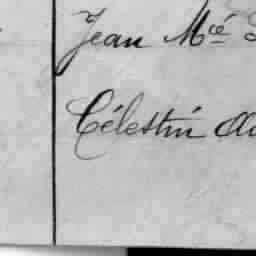 Jean Mcé
Célestin